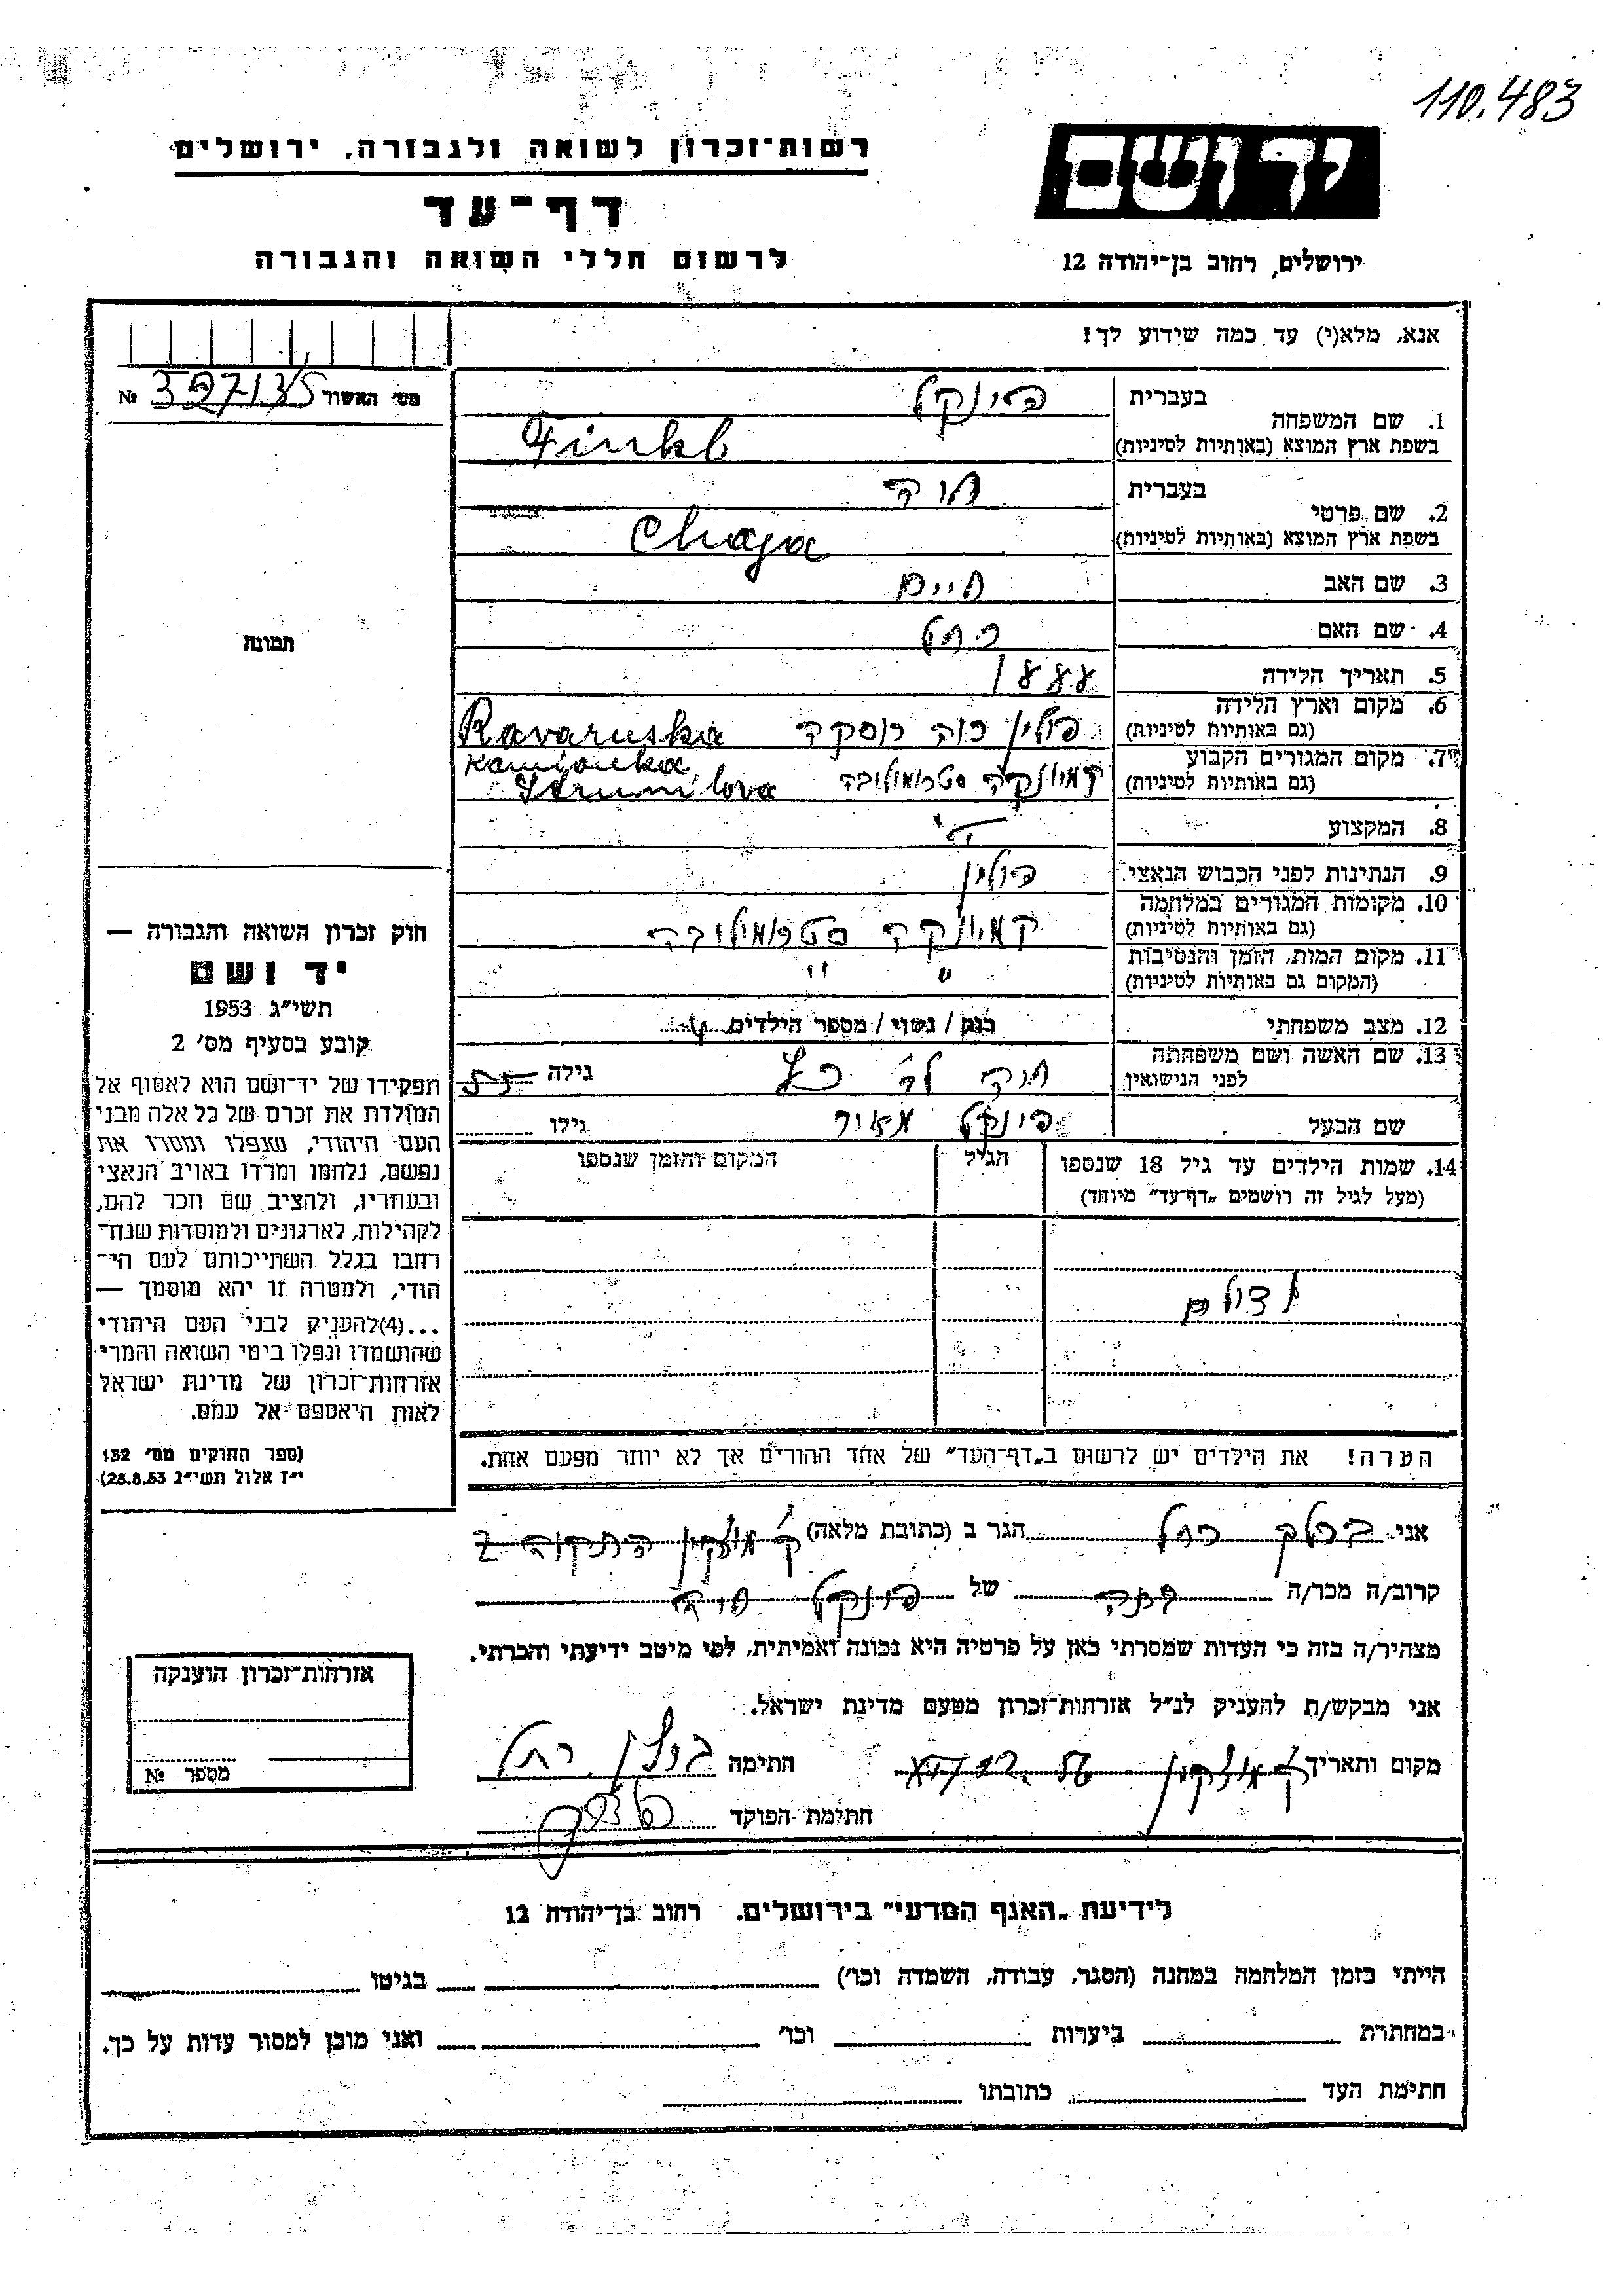 110.483
רשות־זכרון לשואה ולגבורה, ירושלים
יד ושם
דף־עד
לרשום חללי השואה והגבורה
ירושלים, רחוב בן־יהודה 12
אנא, מלא(י) עד כמה שידוע לך!
מס׳ האשור 327135 №
בעברית פינקל
1. שם המשפחה
בשפת ארץ המוצא (באותיות לטיניות) Finkl
בעברית חיה
2. שם פרטי
בשפת ארץ המוצא (באותיות לטיניות) Chaja
3. שם האב חיים
4. שם האם רחל
5. תאריך הלידה 1888
6. מקום וארץ הלידה
(גם באותיות לטיניות) פולין רוה רוסקה Ravaruska
7. מקום המגורים הקבוע Kamionka
(גם באותיות לטיניות) קמיונקה סטרומילובה Strumilova
8. המקצוע
9. הנתינות לפני הכבוש הנאצי פולין
10. מקומות המגורים במלחמה
(גם באותיות לטיניות) קמיונקה סטרומילובה
11. מקום המות, הזמן והנסיבות
(המקום גם באותיות לטיניות) " "
12. מצב משפחתי רווק / נשוי / מספר הילדים 4
13. שם האשה ושם משפחתה
לפני הנישואין חיה גילה
שם הבעל פינקל מאיר גילו
14. שמות הילדים עד גיל 18 שנספו הגיל המקום והזמן שנספו
(מעל לגיל זה רושמים „דף־עד” מיוחד)
הערה! את הילדים יש לרשום ב„דף־העד” של אחד ההורים אך לא יותר מפעם אחת.
תמונה
חוק זכרון השואה והגבורה —
יד ושם
תשי״ג 1953
קובע בסעיף מס׳ 2
תפקידו של יד־ושם הוא לאסוף אל
המולדת את זכרם של כל אלה מבני
העם היהודי, שנפלו ומסרו את
נפשם, נלחמו ומרדו באויב הנאצי
ובעוזריו, ולהציב שם וזכר להם,
לקהילות, לארגונים ולמוסדות שנח־
רבו בגלל השתייכותם לעם הי־
הודי, ולמטרה זו יהא מוסמך —
...(4)להעניק לבני העם היהודי
שהושמדו ונפלו בימי השואה והמרי
אזרחות־זכרון של מדינת ישראל
לאות היאספם אל עמם.
(ספר החוקים מס׳ 132
י״ז אלול תשי״ג 28.8.53)
אני רחל הגר ב (כתובת מלאה) ק מוצקין התקוה 7
קרוב/ה מכר/ה של פינקל חיה
מצהיר/ה בזה כי העדות שמסרתי כאן על פרטיה היא נכונה ואמיתית, לפי מיטב ידיעתי והכרתי.
אני מבקש/ת להעניק לנ״ל אזרחות־זכרון מטעם מדינת ישראל.
מקום ותאריך ק מוצקין חתימה רחל
חתימת הפוקד
אזרחות־זכרון הוענקה
מספר №
לידיעת „האגף המדעי” בירושלים. רחוב בן־יהודה 12
הייתי בזמן המלחמה במחנה (הסגר, עבודה, השמדה וכו׳) בגיטו
במחתרת ביערות וכו׳ ואני מוכן למסור עדות על כך.
חתימת העד כתובתו